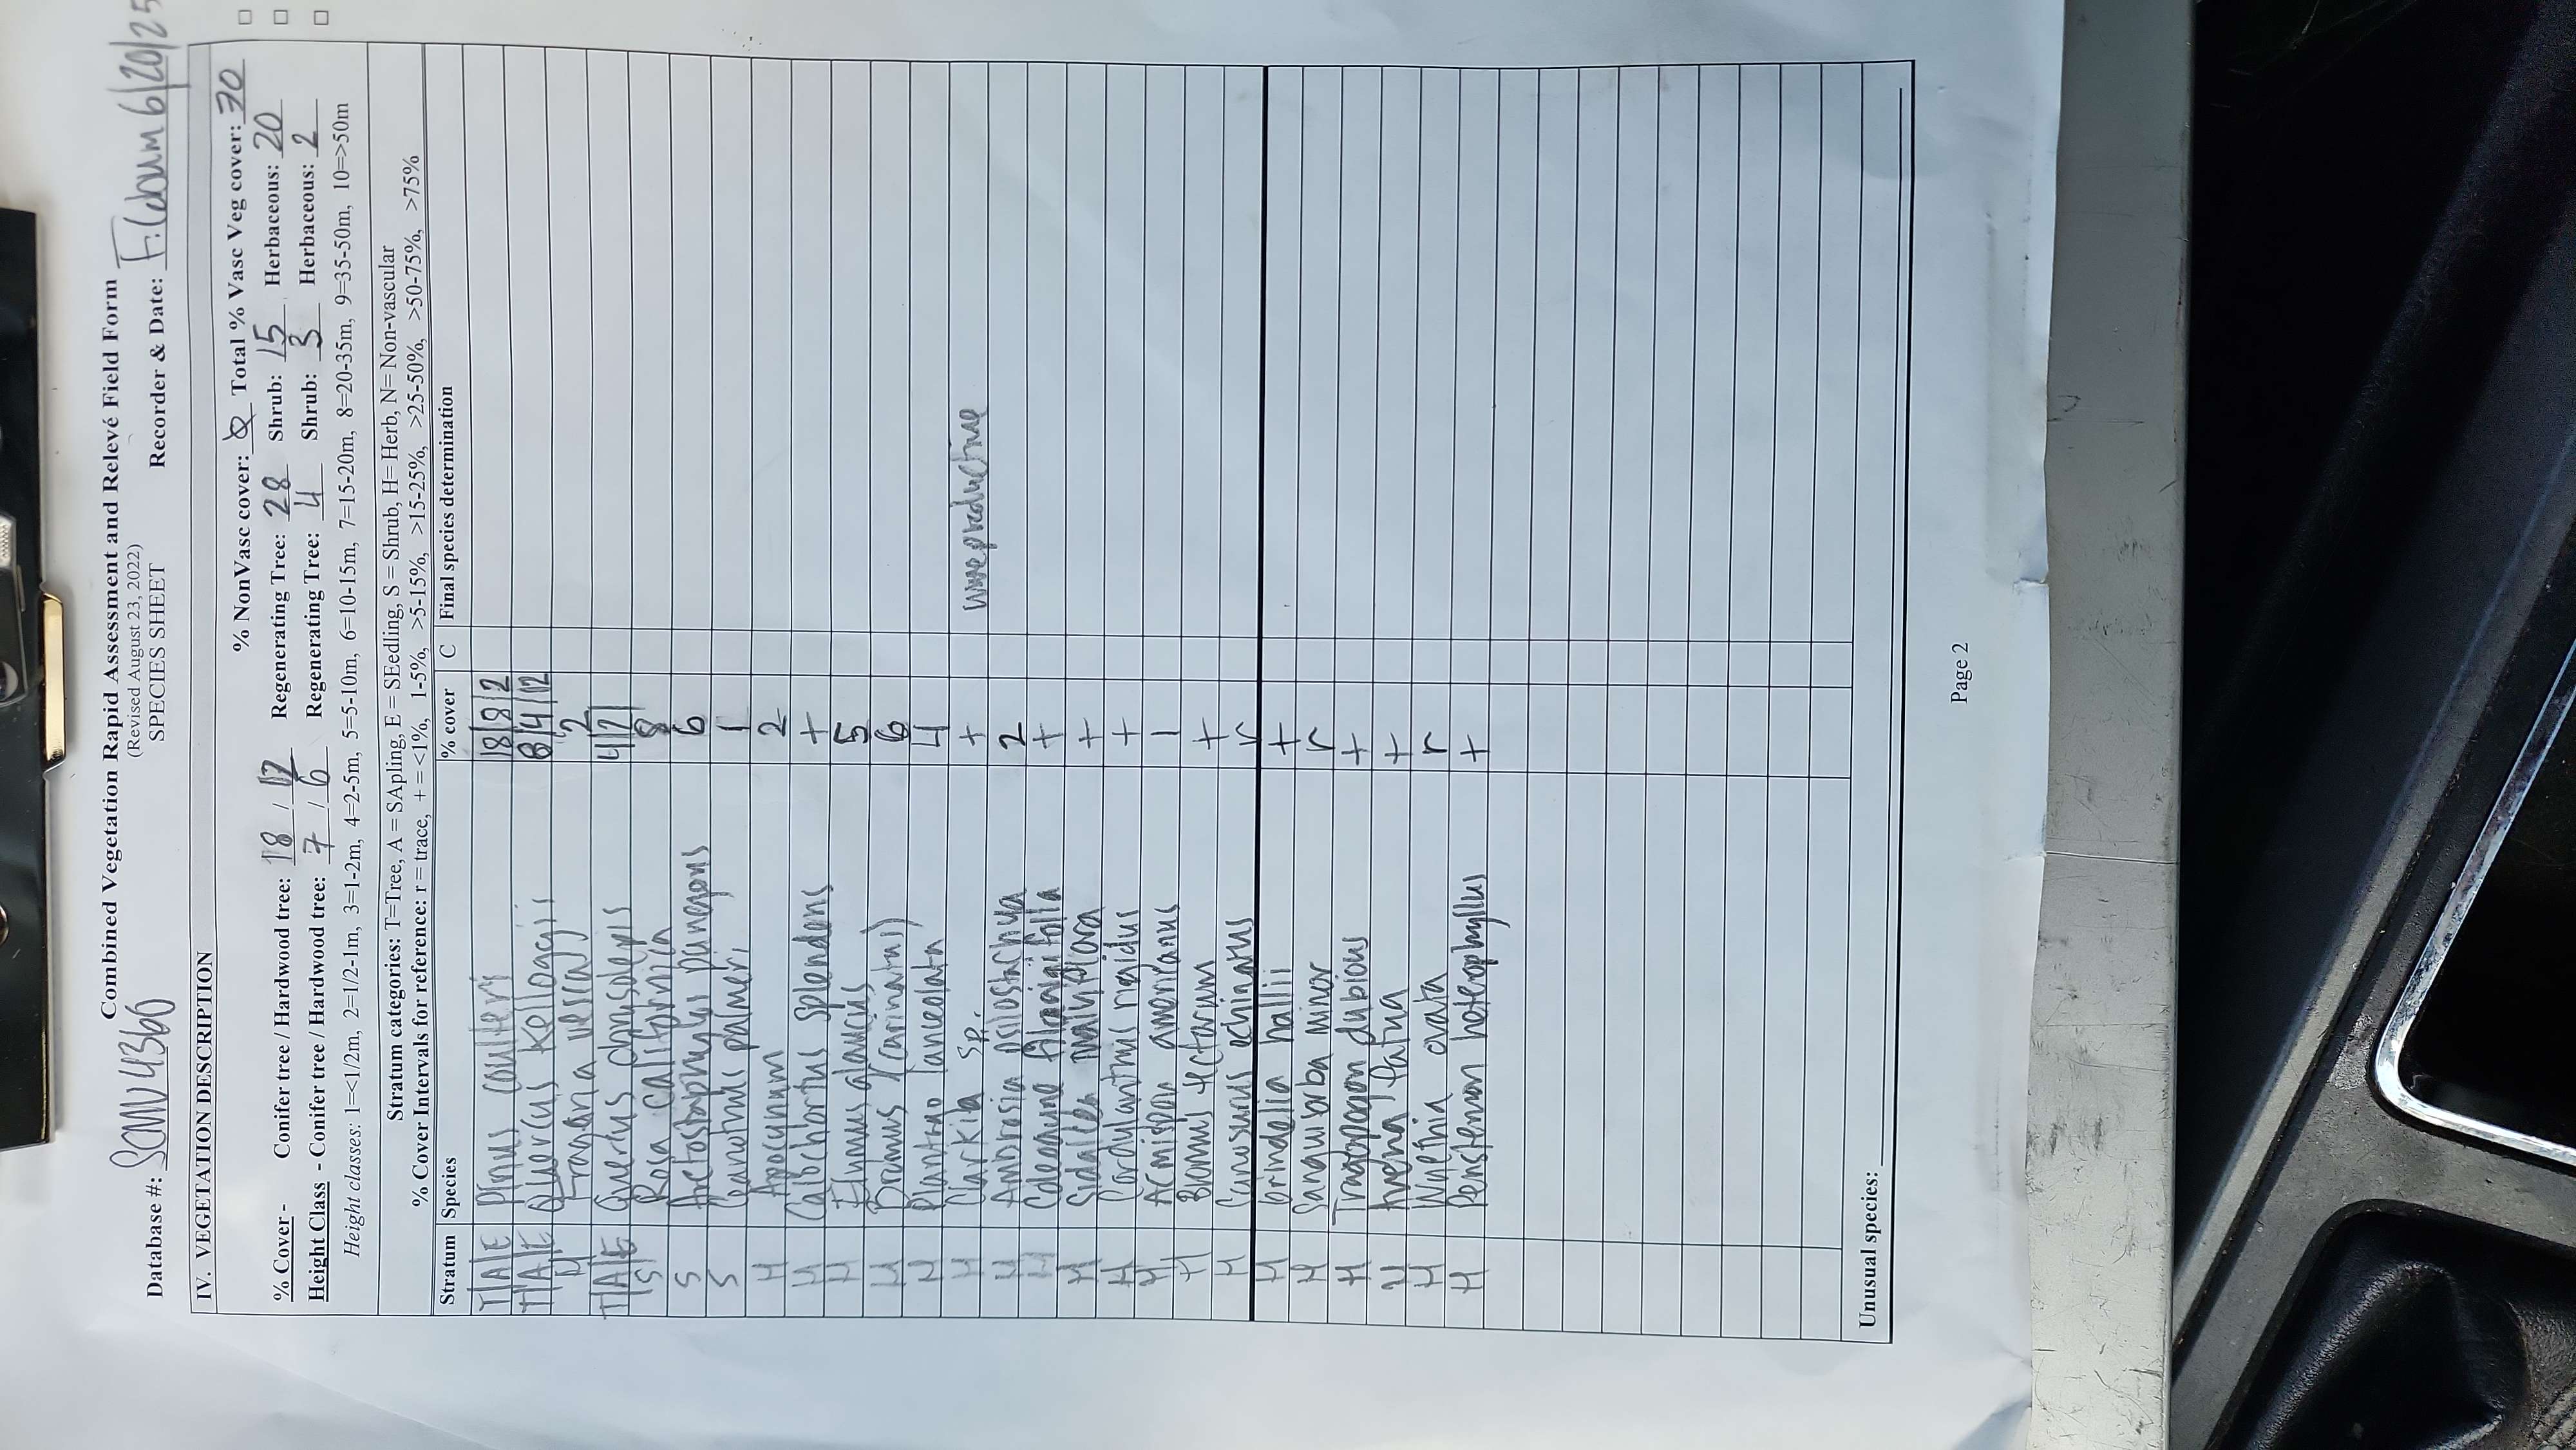 Combined Vegetation Rapid Assessment and Relevé Field Form
(Revised August 23, 2022)
Database #: SCMV4366 SPECIES SHEET Recorder & Date: 6/20/25
IV. VEGETATION DESCRIPTION
% NonVasc cover: 0 Total % Vasc Veg cover: 70
% Cover - Conifer tree / Hardwood tree: 18 / 12 Regenerating Tree: 28 Shrub: 15 Herbaceous: 20
Height Class - Conifer tree / Hardwood tree: 7 / 6 Regenerating Tree: 4 Shrub: 3 Herbaceous: 2
Height classes: 1=<1/2m, 2=1/2-1m, 3=1-2m, 4=2-5m, 5=5-10m, 6=10-15m, 7=15-20m, 8=20-35m, 9=35-50m, 10=>50m
Stratum categories: T=Tree, A = SApling, E = SEedling, S = Shrub, H= Herb, N= Non-vascular
% Cover Intervals for reference: r = trace, + = <1%, 1-5%, >5-15%, >15-25%, >25-50%, >50-75%, >75%
Stratum Species % cover C Final species determination
T|A|E Pinus coulteri 18|8|2
T|A|E Quercus kelloggii 8|4|12
H Fragaria vesca 2
T|A|E Quercus chrysolepis 4|2|
S Rosa californica 8
S Arctostaphylos pungens 6
S Ceanothus palmeri 1
H Apocynum 2
H Calochortus splendens +
H Elymus glaucus 5
H Bromus (carinatus) 6
H Plantago lanceolata 4
H Clarkia sp. + unreproductive
H Ambrosia psilostachya 2
H +
H Sidalcea malviflora +
H Cordylanthus rigidus +
H Acmispon americanus 1
H Bromus tectorum +
H Cynosurus echinatus r
H Grindelia hallii +
H Sanguisorba minor r
H Tragopogon dubious +
H Avena fatua +
H Wyethia ovata r
H Penstemon heterophyllus +
Unusual species:
Page 2